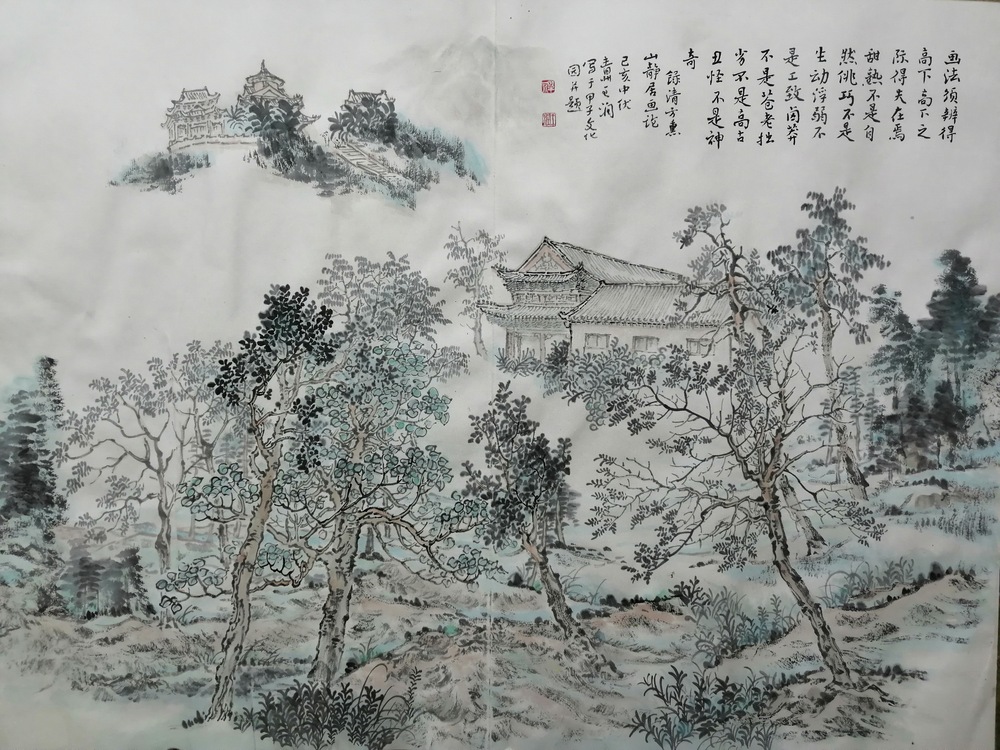 画法须辨得
高下高下之
际得失在焉
甜熟不是自
然佻巧不是
生动浮弱不
是工致卤莽
不是苍老拙
劣不是高古
丑怪不是神
奇
録清方熏
山静居画论
己亥中伏
青州
写于甲子文化
园并题